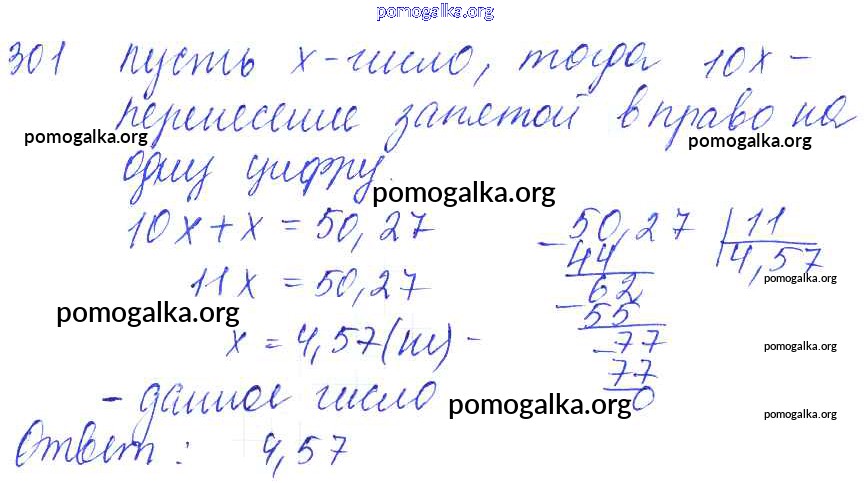 pomogalka.org
301 пусть x - число, тогда 10x -
перенесение запятой вправо на
pomogalka.org pomogalka.org
одну цифру.
pomogalka.org
10x + x = 50,27
11x = 50,27
pomogalka.org
x = 4,57 -
- данное число
Ответ: 4,57
- 50,27 | 11
44 4,57
pomogalka.org
62
- 55
- 77
pomogalka.org
77
0
pomogalka.org
pomogalka.org